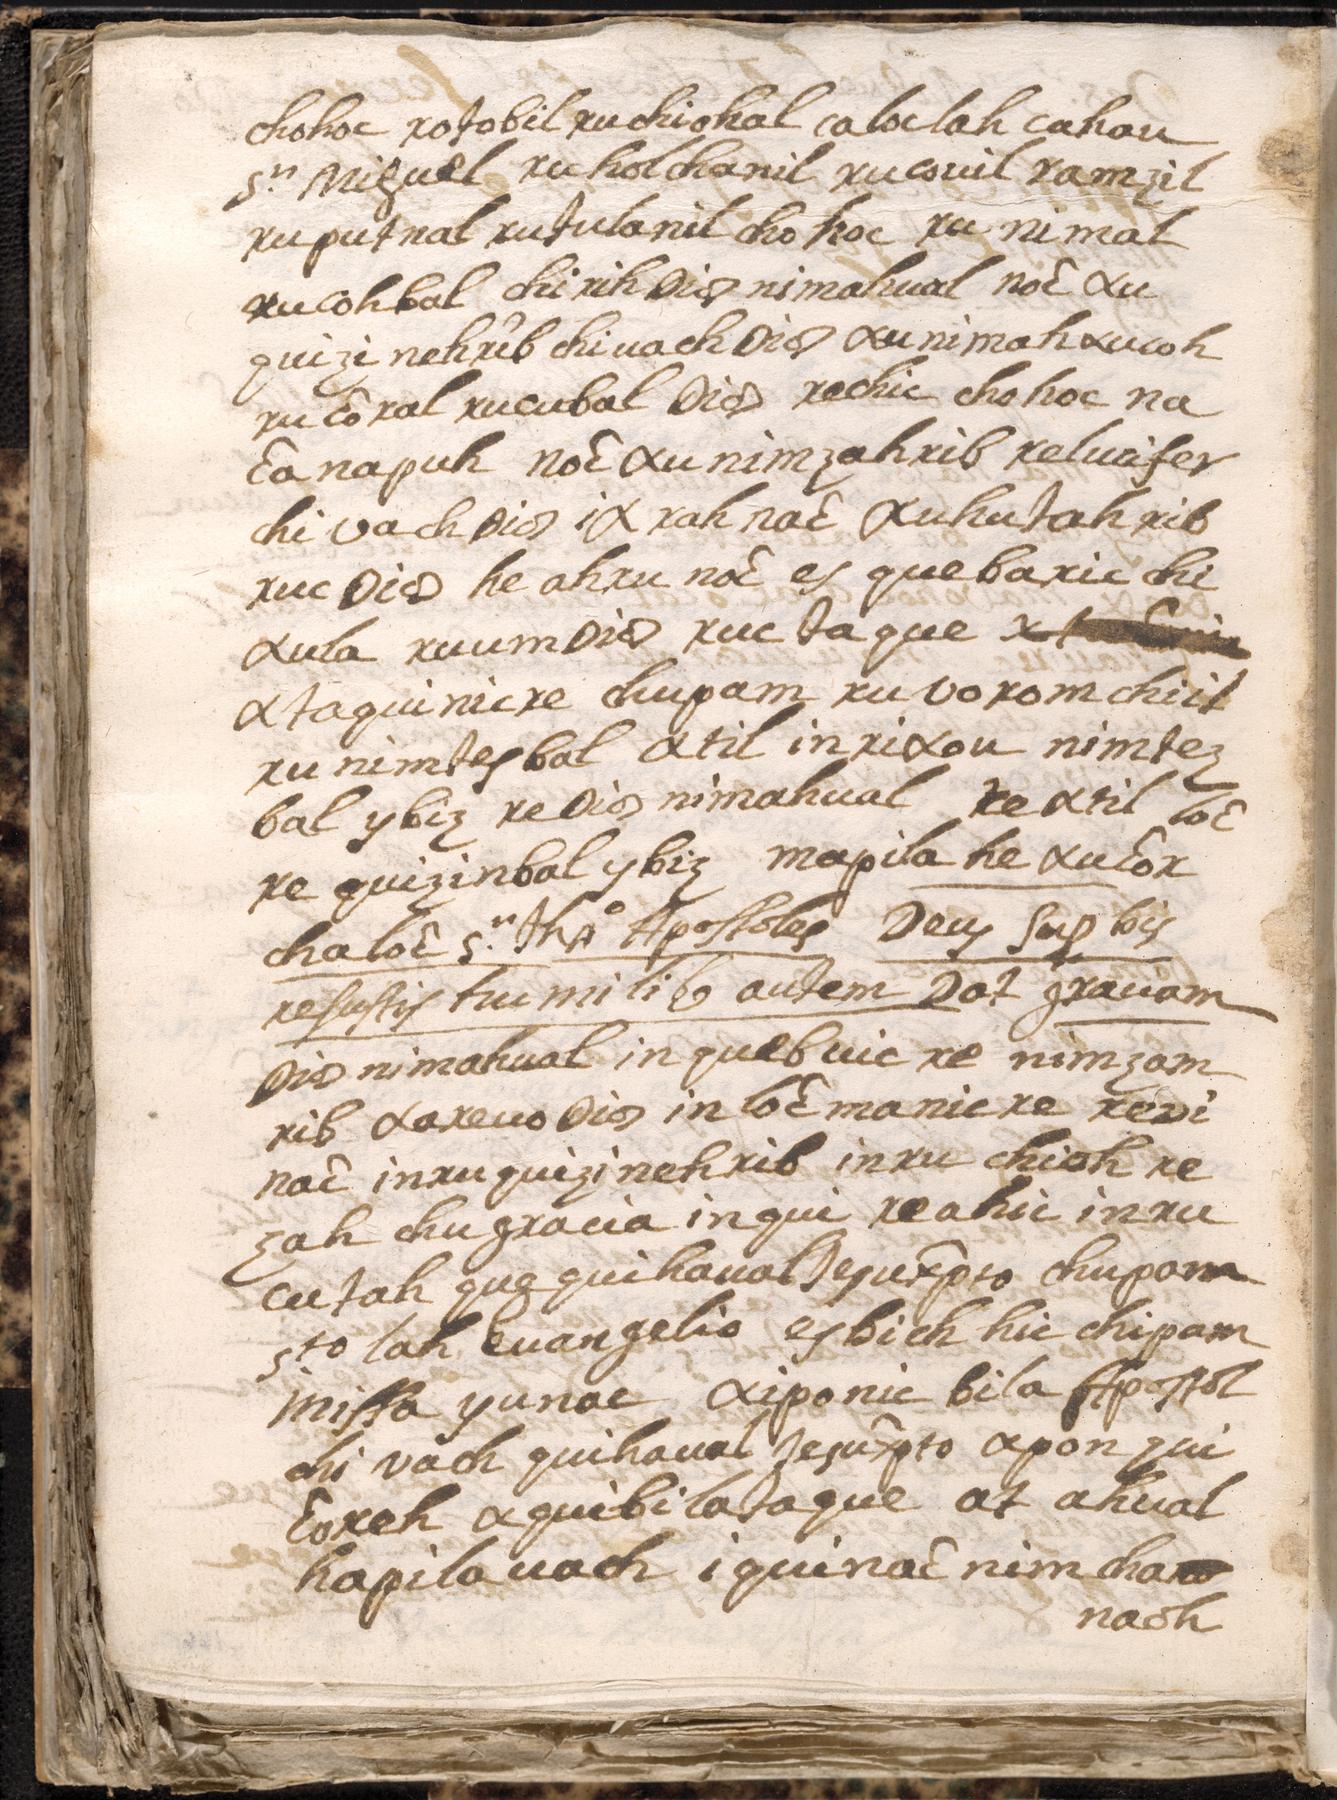 chohoc rotobil ruchiohal caloclah cahau
s.n Miguel ru holchanil rucouil ramzil
ruputnal rutulanil chohoc ru nimal
rucohbal chirih Dios nimahual noꜫ xu
quizinehrib chiuach Dios xunimah xucoh
ru coral rucubal Dios rechic chohoc na
ꜫa napuh noꜫ xu nimzahrib relucifer
chi vach Dios ix rah naꜫ xuhutah rib
ruc Dios he ahru noꜫ es quebaric chi
xula ruum Dios ruc taque
xtaquinicre chupam ru voxom chiit
ru nimtesbal xtil inrixou nimtez
bal ybiz re Dios nimahual re xtil loꜫ
re quizinbal ybiz mapila he xuꜫor
chaloꜫ s.n Apostoles Deus sup bis
resistis humilib autem Dat graciam
Dios nimahual inquebuic re nimzam
rib xareuo Dios inloꜫ manicre redi
naꜫ inruquizinehrib inru chioh re
zah chu gracia inqui reahic inru
cutah que quihaual Jesuxpto chupam
sto lah euangelio esbich hic chipam
missa yunac xiponic bila Apostol
chi vach quihaual Jesuxpto xpon qui
ꜫoreh xquibila taque at ahual
hapila uach iquinaꜫ nim cha
naoh